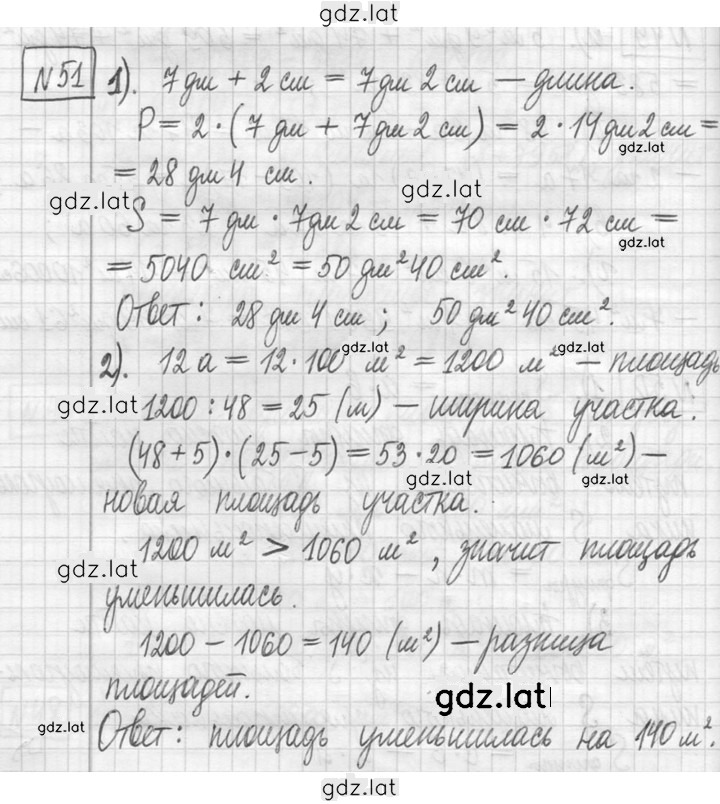 gdz.lat
N 51 1). 7 дм + 2 см = 7 дм 2 см – длина.
P = 2 · (7 дм + 7 дм 2 см) = 2 · 14 дм 2 см =
gdz.lat
= 28 дм 4 см.
gdz.lat
gdz.lat
S = 7 дм · 7 дм 2 см = 70 см · 72 см =
gdz.lat
= 5040 см² = 50 дм² 40 см².
Ответ: 28 дм 4 см; 50 дм² 40 см².
gdz.lat gdz.lat
2). 12 а = 12 · 100 м² = 1200 м² – площадь
gdz.lat
1200 : 48 = 25 (м) – ширина участка.
(48 + 5) · (25 – 5) = 53 · 20 = 1060 (м²) –
gdz.lat gdz.lat
новая площадь участка.
1200 м² > 1060 м², значит площадь
gdz.lat
уменьшилась.
1200 – 1060 = 140 (м²) – разница
площадей.
gdz.lat
gdz.lat
Ответ: площадь уменьшилась на 140 м².
gdz.lat